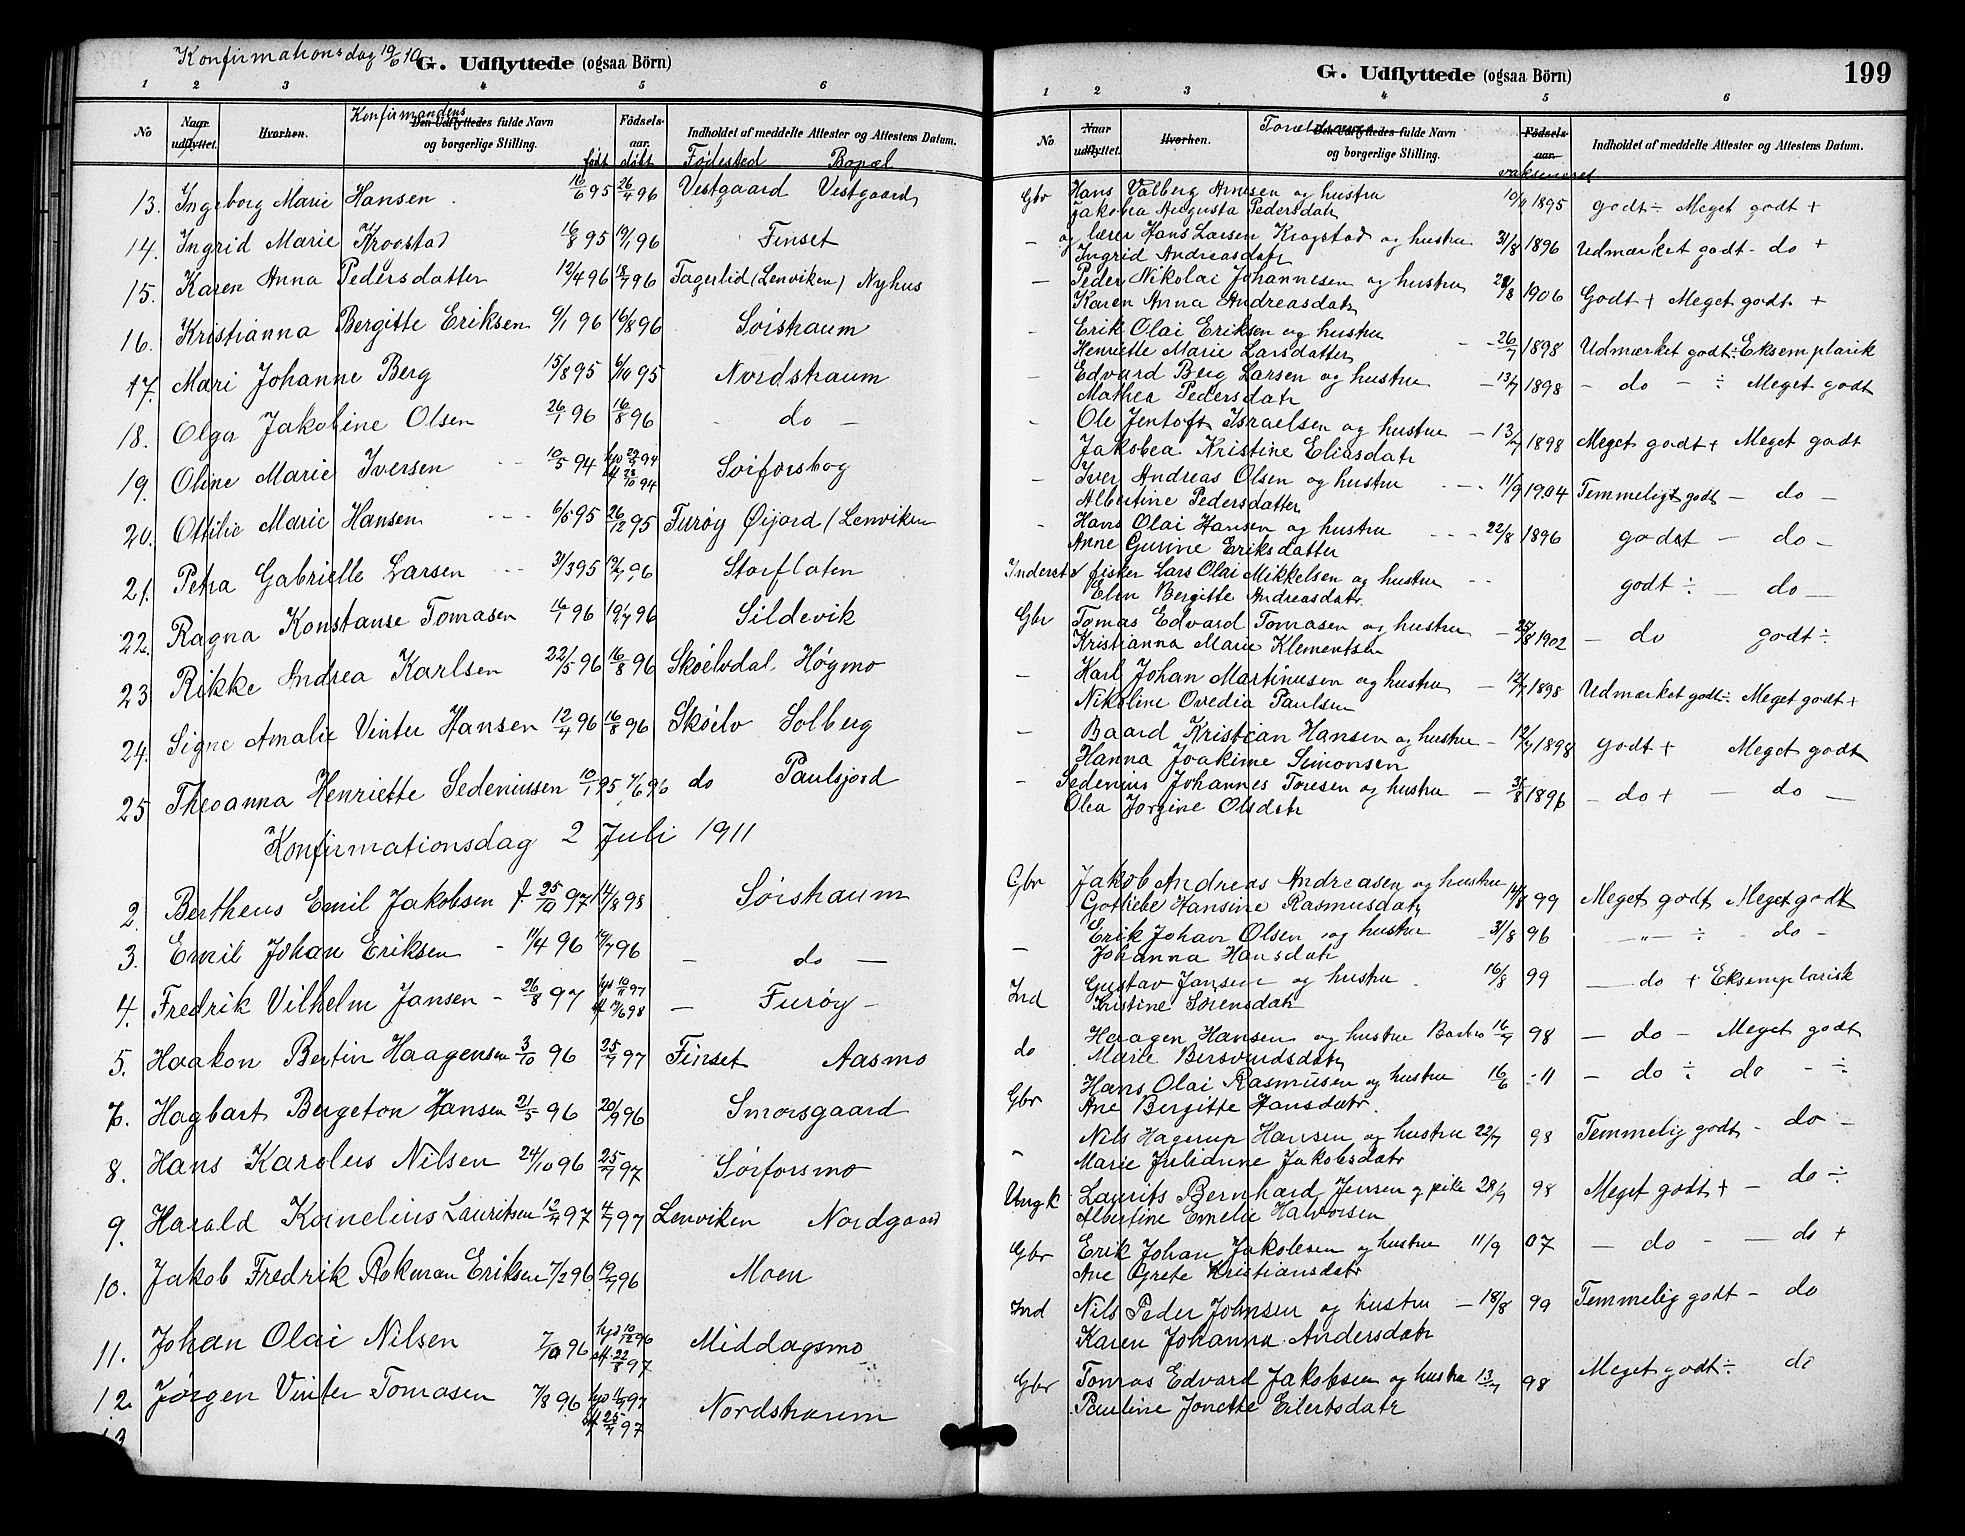 Konfirmationsdag 19/6 10
G. Udflyttede (ogsaa Börn)
1 2 3 4 5 6
No Naar udflyttet. Hvorhen. Konfirmandens Den Udflyttedes fulde Navn og borgerlige Stilling. Födsels-aar. Indholdet af meddelte Attester og Attestens Datum.
født døbt Fødested Bopæl
13. Ingeborg Marie Hansen 16/6 95 26/4 96 Vestgaard Vestgaard
14. Ingrid Marie Krogstad 16/8 95 19/1 96 Finset
15. Karen Anna Pedersdatter 12/4 96 18/7 96 Fagerlid (Lenviken) Nyhus
16. Kristianna Bergitte Eriksen 9/1 96 16/8 96 Sörstraum
17. Mari Johanne Berg 15/8 95 6/10 95 Nordstraum
18. Olga Jakobine Olsen 26/1 96 16/8 96 do —
19. Oline Marie Iversen 10/5 94 hjd 29/7 94 stf 28/10 94 Sörforsbog
20. Ottilie Marie Hansen 6/5 95 26/12 95 Furøy Øijord (Lenviken
21. Petra Gabrielle Larsen 31/3 95 12/7 96 Storfloten
22. Ragna Konstanse Tomasen 16/1 96 19/7 96 Sildevik
23 Rikke Andrea Karlsen 22/5 96 16/8 96 Sköelvdal Høgmo
24. Signe Amalie Vinter Hansen 12/4 96 16/8 96 Sköelv Solberg
25 Theoanna Henriette Sedeniussen 10/1 95 7/6 96 do Paulsjord
Konfirmationsdag 2 Juli 1911
2. Bertheus Emil Jakobsen f. 25/10 97 14/8 98 Sörstraum
3. Emil Johan Eriksen - 11/4 96 19/7 96 — do —
4. Fredrik Vilhelm Jansen - 26/8 97 hjd 10/11 97 stf 19/6 98 — Furøy —
5. Haakon Bertin Haagensen 3/10 96 25/7 97 Finset Aasmo
7. Hagbart Bergeton Hansen 21/5 96 20/9 96 Smorsgaard
8. Hans Karolus Nilsen 24/10 96 25/7 97 Sörforsmo
9. Harald Kornelius Lauritsen 12/4 97 4/7 97 Lenviken Nordgaard
10. Jakob Fredrik Rokman Eriksen 7/2 96 19/7 96 Moen
11. Johan Olai Nilsen 7/10 96 hjd 10/12 96 stf. 22/8 97 Middagsmo
12. Jørgen Vinter Tomasen 7/8 96 hjd 11/4 97 stf 25/7 97 Nordstraum
13
G. Udflyttede (ogsaa Börn)
199
1 2 3 4 5 6
No Naar udflyttet. Hvorhen. Forældrenes Den Udflyttedes fulde Navn og borgerlige Stilling. Födsels-aar. Indholdet af meddelte Attester og Attestens Datum.
vaksineret
Gbr Hans Valberg Arntsen og hustru 10/9 1895 godt ÷ Meget godt +
Jakobia Augusta Pedersdatr
— og lærer Hans Larsen Krogstad og hustru 31/8 1896 Udmærket godt - do +
Ingrid Andreasdatr
— Peder Nikolai Johannesen og hustru 28/8 1906 Godt + Meget godt +
Karen Anna Andreasdatr
- Erik Olai Eriksen og hustru - 26/7 1898 Udmærket godt ÷ Eksemplarisk
Henriette Marie Larsdatter
- Edvard Berg Larsen og hustru - 13/7 1898 - do - ÷ Meget godt
Mathea Pedersdatr
- Ole Jentoft Israelsen og hustru - 13/7 1898 Meget godt + Meget godt
Jakobea Kristine Eliasdatr
— Iver Andreas Olsen og hustru - 11/9 1904 Temmeligt godt — do —
Albertine Pedersdatter
- Hans Olai Hansen og hustru - 22/8 1896 godt — do —
Anne Gurine Eriksdatter
Inderst & fisker Lars Olai Mikkelsen og hustru godt ÷ — do —
Elen Bergitte Andreasdatr.
Gbr Tomas Edvard Tomasen og hustru - 25/8 1902 — do godt ÷
Kristianna Marie Klementsen
- Karl Johan Martinusen og hustru - 12/7 1898 Udmærket godt ÷ Meget godt +
Nikoline Ovedia Paulsen
- Baard Kristian Hansen og hustru - 12/7 1898 godt + Meget godt
Hanna Joakime Simonsen
- Sedenius Johannes Toresen og hustru — 31/8 1896 — do + — do —
Olea Jørgine Olsdatr
Gbr Jakob Andreas Andreasen og hustru 14/8 99 Meget godt Meget godt
Gotliebe Hansine Rasmusdatr
— Erik Johan Olsen og hustru - 31/8 96 —"— ÷ - do -
Johanna Hansdatr
Ind Gustav Jansen og hustru 16/8 99 — do + Eksemplarisk
Kristine Sörensdatr
do Haagen Hansen og hustru Barbro 16/7 98 — do - Meget godt
Marie Bersvendsdatr
Gbr Hans Olai Rasmusen og hustru 16/6 - 11 — do ÷ do - ÷
Ane Bergitte Hansdatr.
- Nils Hagerup Hansen og hustru 22/7 98 Temmelig godt - do -
Marie Julianne Jakobsdatr
Ungk Laurits Bernhard Jensen og pike 28/9 98 Meget godt + — do ÷
Albertine Emelie Halvorsen
Gbr Erik Johan Jakobsen og hustru 11/9 07 — do - — do +
Ane Grete Kristiansdatr
Ind Nils Peder Johnsen og hustru — 18/8 99 Temmelig godt — do
Karen Johanna Andersdatr
Gbr Tomas Edvard Jakobsen og hustru 13/7 98 Meget godt ÷ do
Pauline Jonette Eilertsdatr